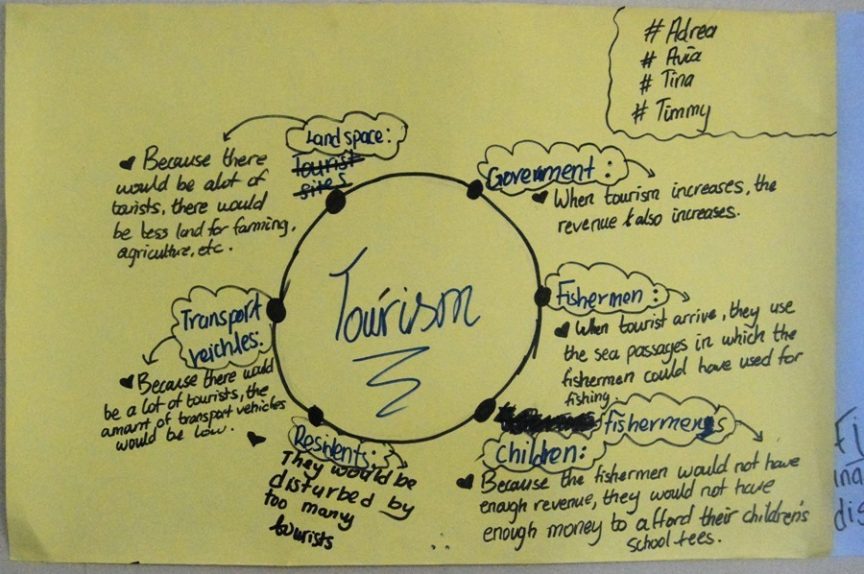 # Adrea
# Avia
# Tina
# Timmy
Land space:
tourist
sites
Because there
would be alot of
torists, there would
be less land for farming,
agriculture, etc.
Government:
When tourism increases, the
revenue also increases.
Tourism
Fishermen:
When tourist arrive, they use
the sea passages in which the
fishermen could have used for
fishing.
Transport
veichles:
Because there would
be a lot of tourists, the
amount of transport vehicles
would be low.
Residents:
They would be
disturbed by
too many
tourists
fishermen's
children:
Because the fishermen would not have
enough revenue, they would not have
enough money to afford their children's
school fees.
ina
dis